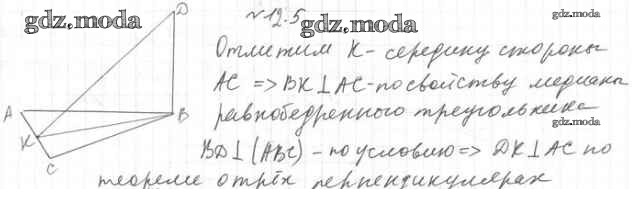 gdz.moda
D
№12.5
gdz.moda
gdz.moda
Отметим K - середину стороны
AC => BK ⊥ AC - по свойству медианы
равнобедренного треугольника
gdz.moda
BD ⊥ (ABC) - по условию => DK ⊥ AC по
теореме о трёх перпендикулярах
A
B
K
C